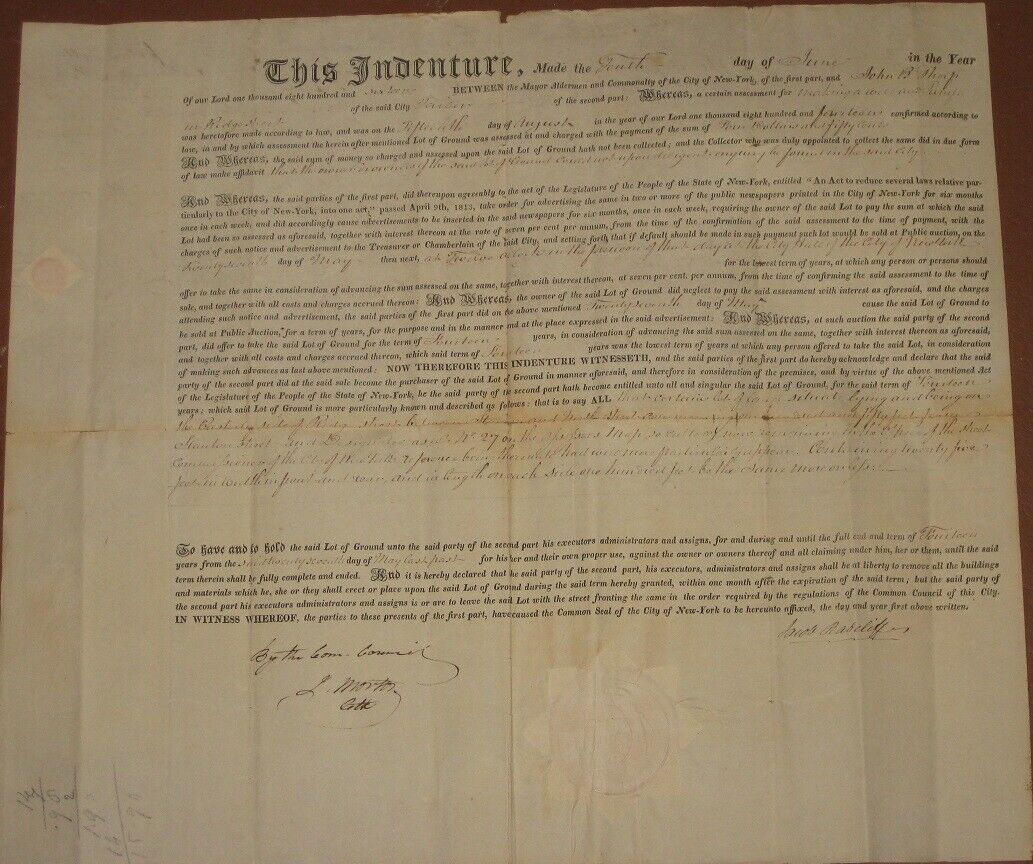 This Indenture, Made the Tenth day of June in the Year
Of our Lord one thousand eight hundred and sixteen BETWEEN the Mayor Aldermen and Commonalty of the City of New-York, of the first part, and John B Thorp
of the said City of the second part: Whereas, a certain assessment for making a well and
in Ridge Street
was heretofore made according to law, and was on the Fifteenth day of August in the year of our Lord one thousand eight hundred and fourteen confirmed according to
law, in and by which assessment the herein after mentioned Lot of Ground was assessed at and charged with the payment of the sum of Four Dollars and fifty Cents
And Whereas, the said sum of money so charged and assessed upon the said Lot of Ground hath not been collected; and the Collector who was duly appointed to collect the same did in due form
of law make affidavit that the owner or owners of the said Lot of Ground could not upon diligent enquiry be found in the said City
And Whereas, the said parties of the first part, did thereupon agreeably to the act of the Legislature of the People of the State of New-York, entitled "An Act to reduce several laws relative par-
ticularly to the City of New-York, into one act," passed April 9th, 1813, take order for advertising the same in two or more of the public newspapers printed in the City of New-York for six months
once in each week, and did accordingly cause advertisements to be inserted in the said newspapers for six months, once in each week, requiring the owner of the said Lot to pay the sum at which the said
Lot had been so assessed as aforesaid, together with interest thereon at the rate of seven per cent per annum, from the time of the confirmation of the said assessment to the time of payment, with the
charges of such notice and advertisement to the Treasurer or Chamberlain of the said City, and setting forth that if default should be made in such payment such lot would be sold at Public auction, on the
Twenty seventh day of May then next, at Twelve oClock in the forenoon of that day at the City Hall of the City of New York
for the lowest term of years, at which any person or persons should
offer to take the same in consideration of advancing the sum assessed on the same, together with interest thereon, at seven per cent. per annum, from the time of confirming the said assessment to the time of
sale, and together with all costs and charges accrued thereon: And Whereas, the owner of the said Lot of Ground did neglect to pay the said assessment with interest as aforesaid, and the charges
attending such notice and advertisement, the said parties of the first part did on the above mentioned Twenty seventh day of May cause the said Lot of Ground to
be sold at Public Auction, for a term of years, for the purpose and in the manner and at the place expressed in the said advertisement: And Whereas, at such auction the said party of the second
part, did offer to take the said Lot of Ground for the term of Fourteen years, in consideration of advancing the said sum assessed on the same, together with interest thereon as aforesaid,
and together with all costs and charges accrued thereon, which said term of Fourteen years was the lowest term of years at which any person offered to take the said Lot, in consideration
of making such advances as last above mentioned: NOW THEREFORE THIS INDENTURE WITNESSETH, and the said parties of the first part do hereby acknowledge and declare that the said
party of the second part did at the said sale become the purchaser of the said Lot of Ground in manner aforesaid, and therefore in consideration of the premises, and by virtue of the above mentioned Act
of the Legislature of the People of the State of New-York, he the said party of the second part hath become entitled unto all and singular the said Lot of Ground, for the said term of Fourteen
years; which said Lot of Ground is more particularly known and described as follows: that is to say ALL that certain lot of ground situate lying and being on
the side of Ridge Street between and Street and fifty feet from
Stanton Street and as Lot No. 27 on the Assessors Map so called now remaining in the Office of the Street
Commissioner of the City of New York reference being thereunto had will more particularly appear. Containing twenty five
feet in width in front and rear, and in length on each side one hundred feet be the same more or less
To have and to hold the said Lot of Ground unto the said party of the second part his executors administrators and assigns, for and during and until the full end and term of Fourteen
years from the said twenty seventh day of May last past for his her and their own proper use, against the owner or owners thereof and all claiming under him, her or them, until the said
term therein shall be fully complete and ended. And it is hereby declared that he said party of the second part, his executors, administrators and assigns shall be at liberty to remove all the buildings
and materials which he, she or they shall erect or place upon the said Lot of Ground during the said term hereby granted, within one month after the expiration of the said term; but the said party of
the second part his executors administrators and assigns is or are to leave the said Lot with the street fronting the same in the order required by the regulations of the Common Council of this City.
IN WITNESS WHEREOF, the parties to these presents of the first part, have caused the Common Seal of the City of New-York to be hereunto affixed, the day and year first above written.
Jacob Radcliff
By the Com. Council
J. Morton
Clk